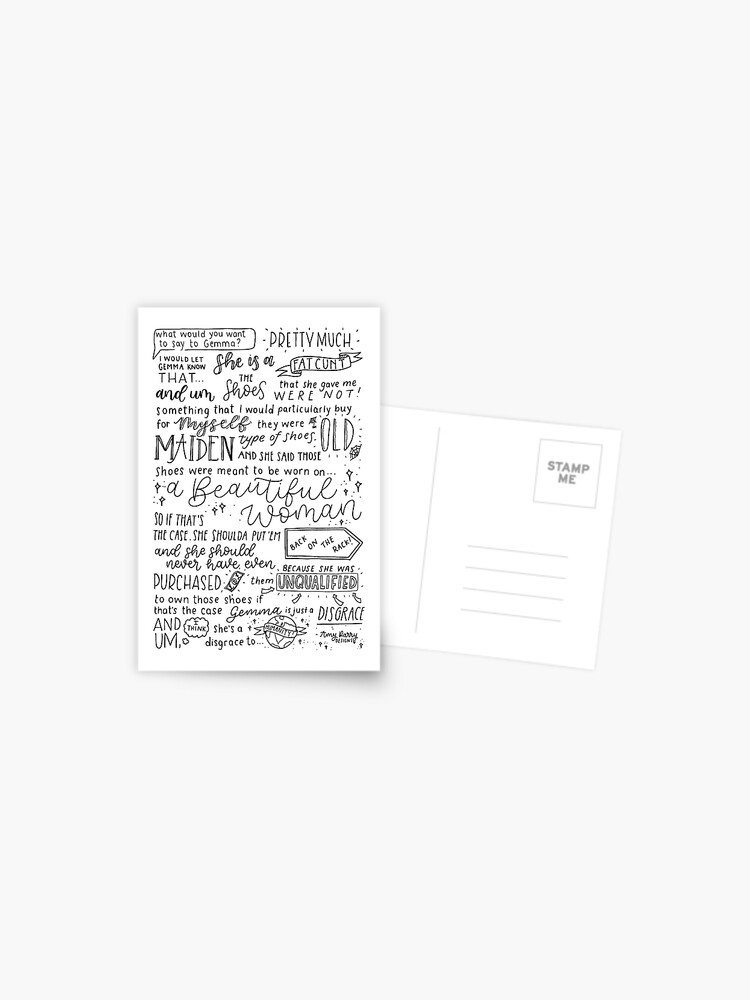 what would you want PRETTY MUCH
to say to Gemma?
I WOULD LET GEMMA KNOW She is a FAT CUNT
THAT...
and um THE Shoes that she gave me WERE NOT!
something that I would particularly buy
for Myself they were OLD
MAIDEN type of shoes. AND SHE SAID THOSE
shoes were meant to be worn on...
a Beautiful
Woman
SO IF THAT'S
THE CASE, SHE SHOULDA PUT 'EM BACK ON THE RACK!
and she should
never have even BECAUSE SHE WAS
PURCHASED them UNQUALIFIED
to own those shoes if
that's the case Gemma is just a DISGRACE
AND I THINK she's a HUMANITY!
UM, disgrace to... Amy Barry
DESIGNS
STAMP
ME